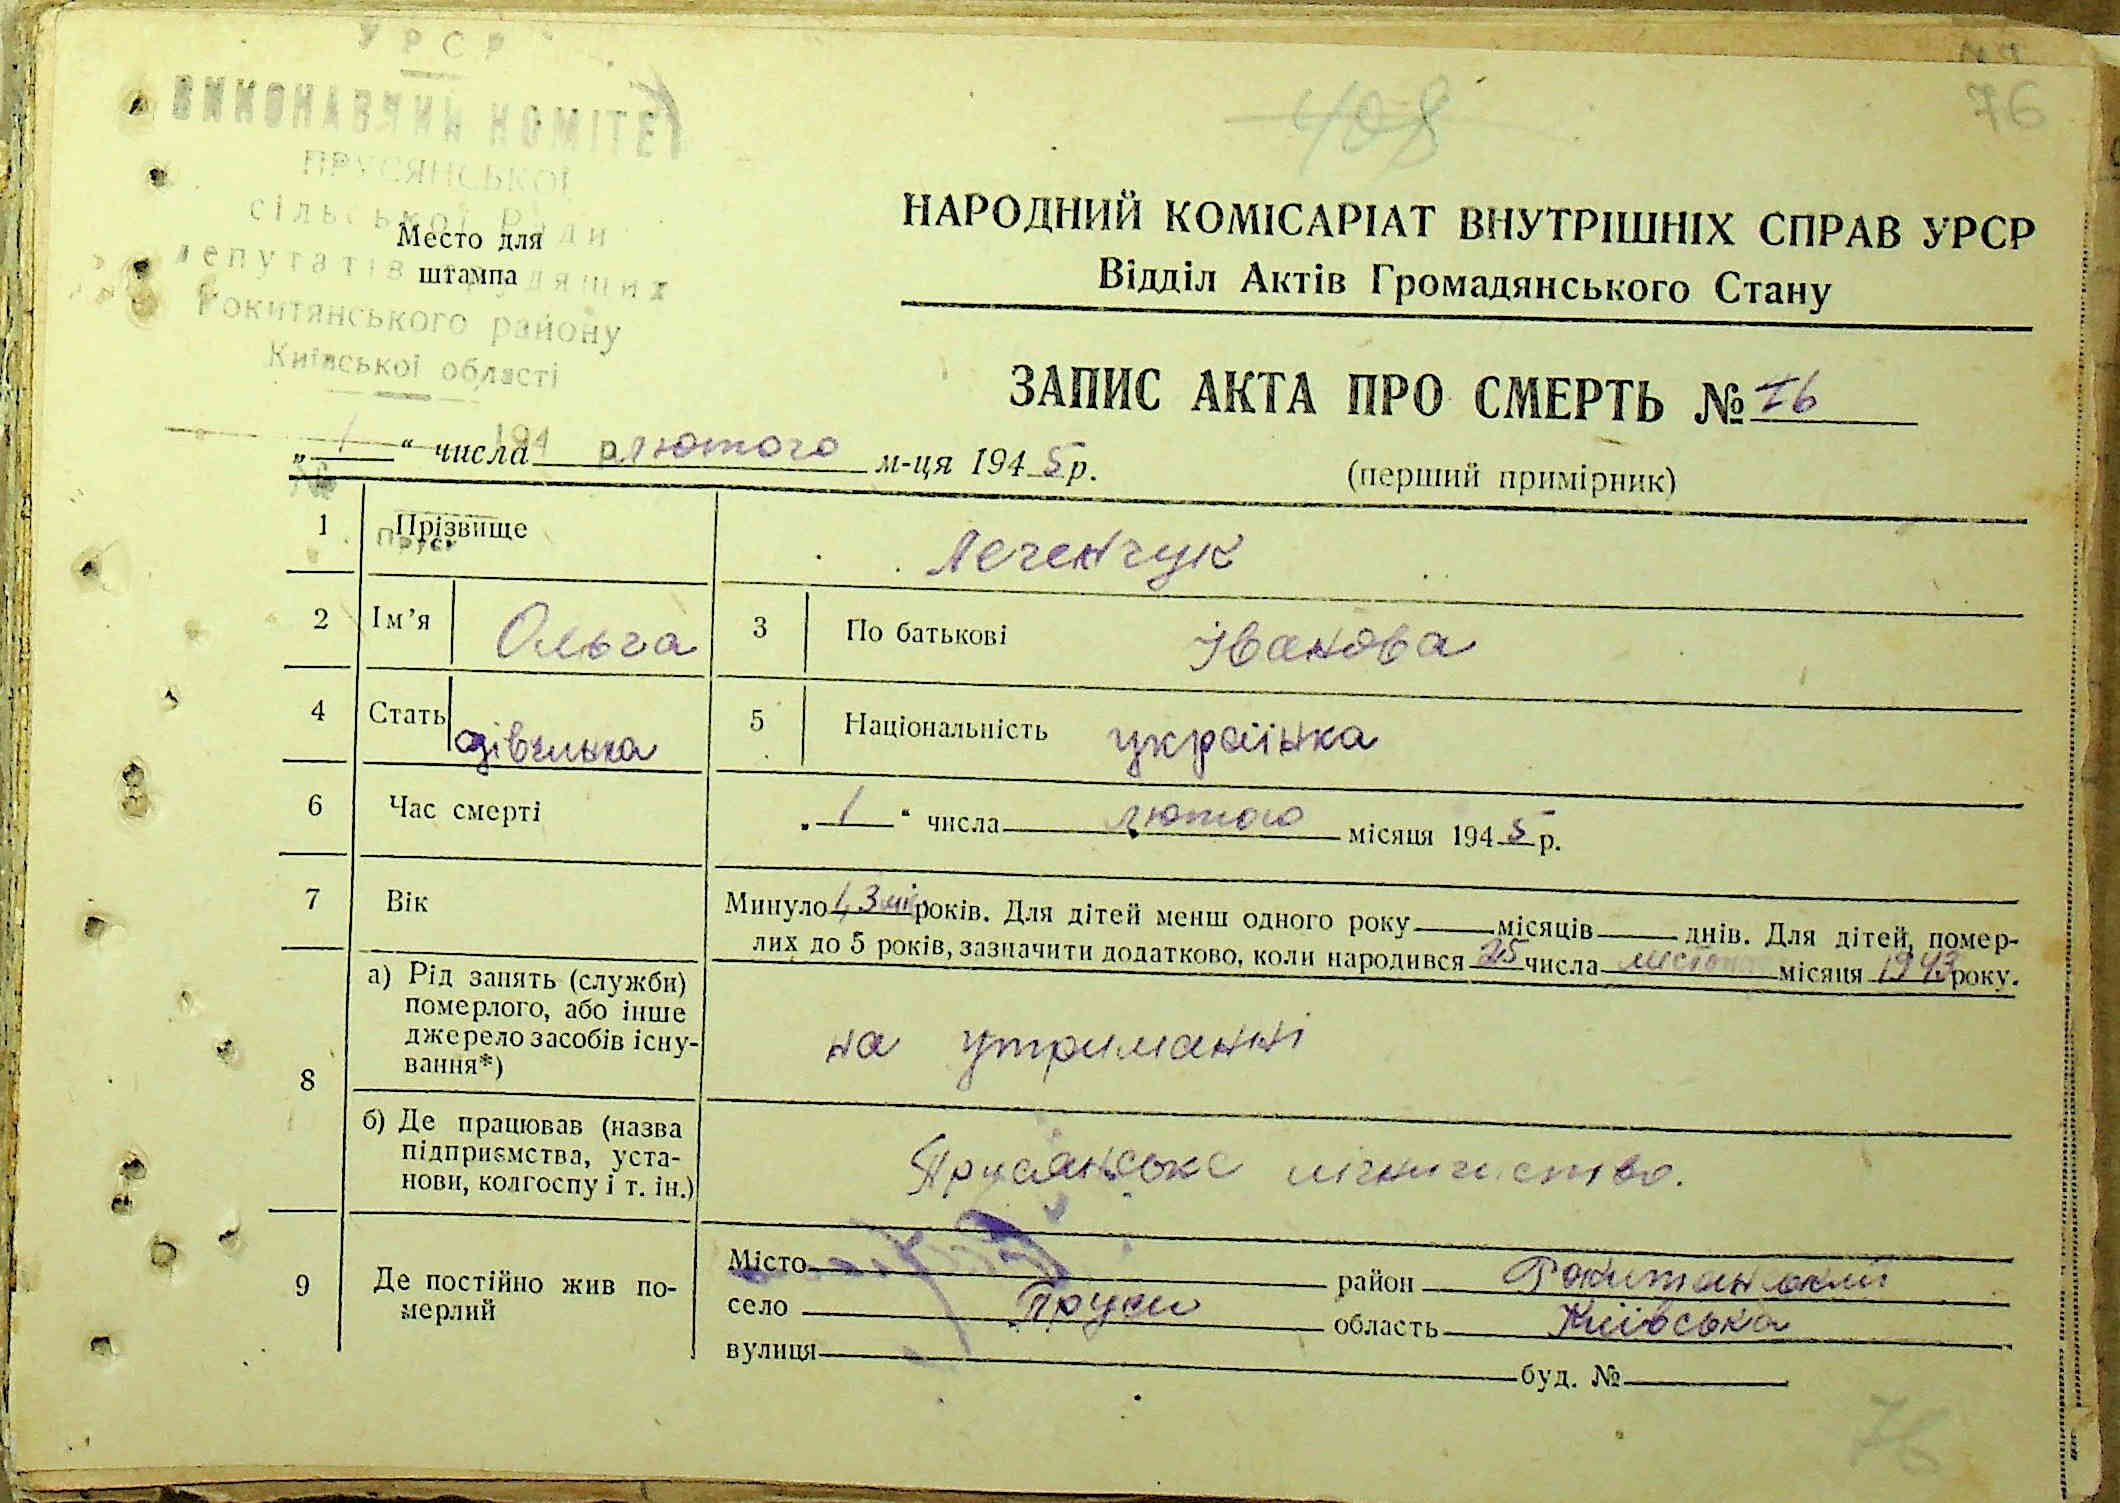 УРСР
76
408
ВИКОНАВЧИЙ КОМІТЕТ
ПРУСЯНСЬКОЇ
сільської Ради
депутатів трудящих
Рокитянського району
Київської області
Место для
штампа
НАРОДНИЙ КОМІСАРІАТ ВНУТРІШНІХ СПРАВ УРСР
Відділ Актів Громадянського Стану
ЗАПИС АКТА ПРО СМЕРТЬ №
194 р
„ 1 “ числа лютого м-ця 1945 р.
(перший примірник)
1 Прізвище
2 Ім’я Ольга 3 По батькові Іванова
4 Стать дівчинка 5 Національність українка
6 Час смерті „ 1 “ числа лютого місяця 1945 р.
7 Вік Минуло 1, 3 міс років. Для дітей менш одного року місяців днів. Для дітей, помер-
лих до 5 років, зазначити додатково, коли народився 25 числа місяця 1943 року.
8 а) Рід занять (служби)
померлого, або інше
джерело засобів існу-
вання*)
на утриманні
б) Де працював (назва
підприємства, уста-
нови, колгоспу і т. ін.)
Прусянське
9 Де постійно жив по-
мерлий
Місто район Рокитянський
село Пруси область Київська
вулиця буд. №
76